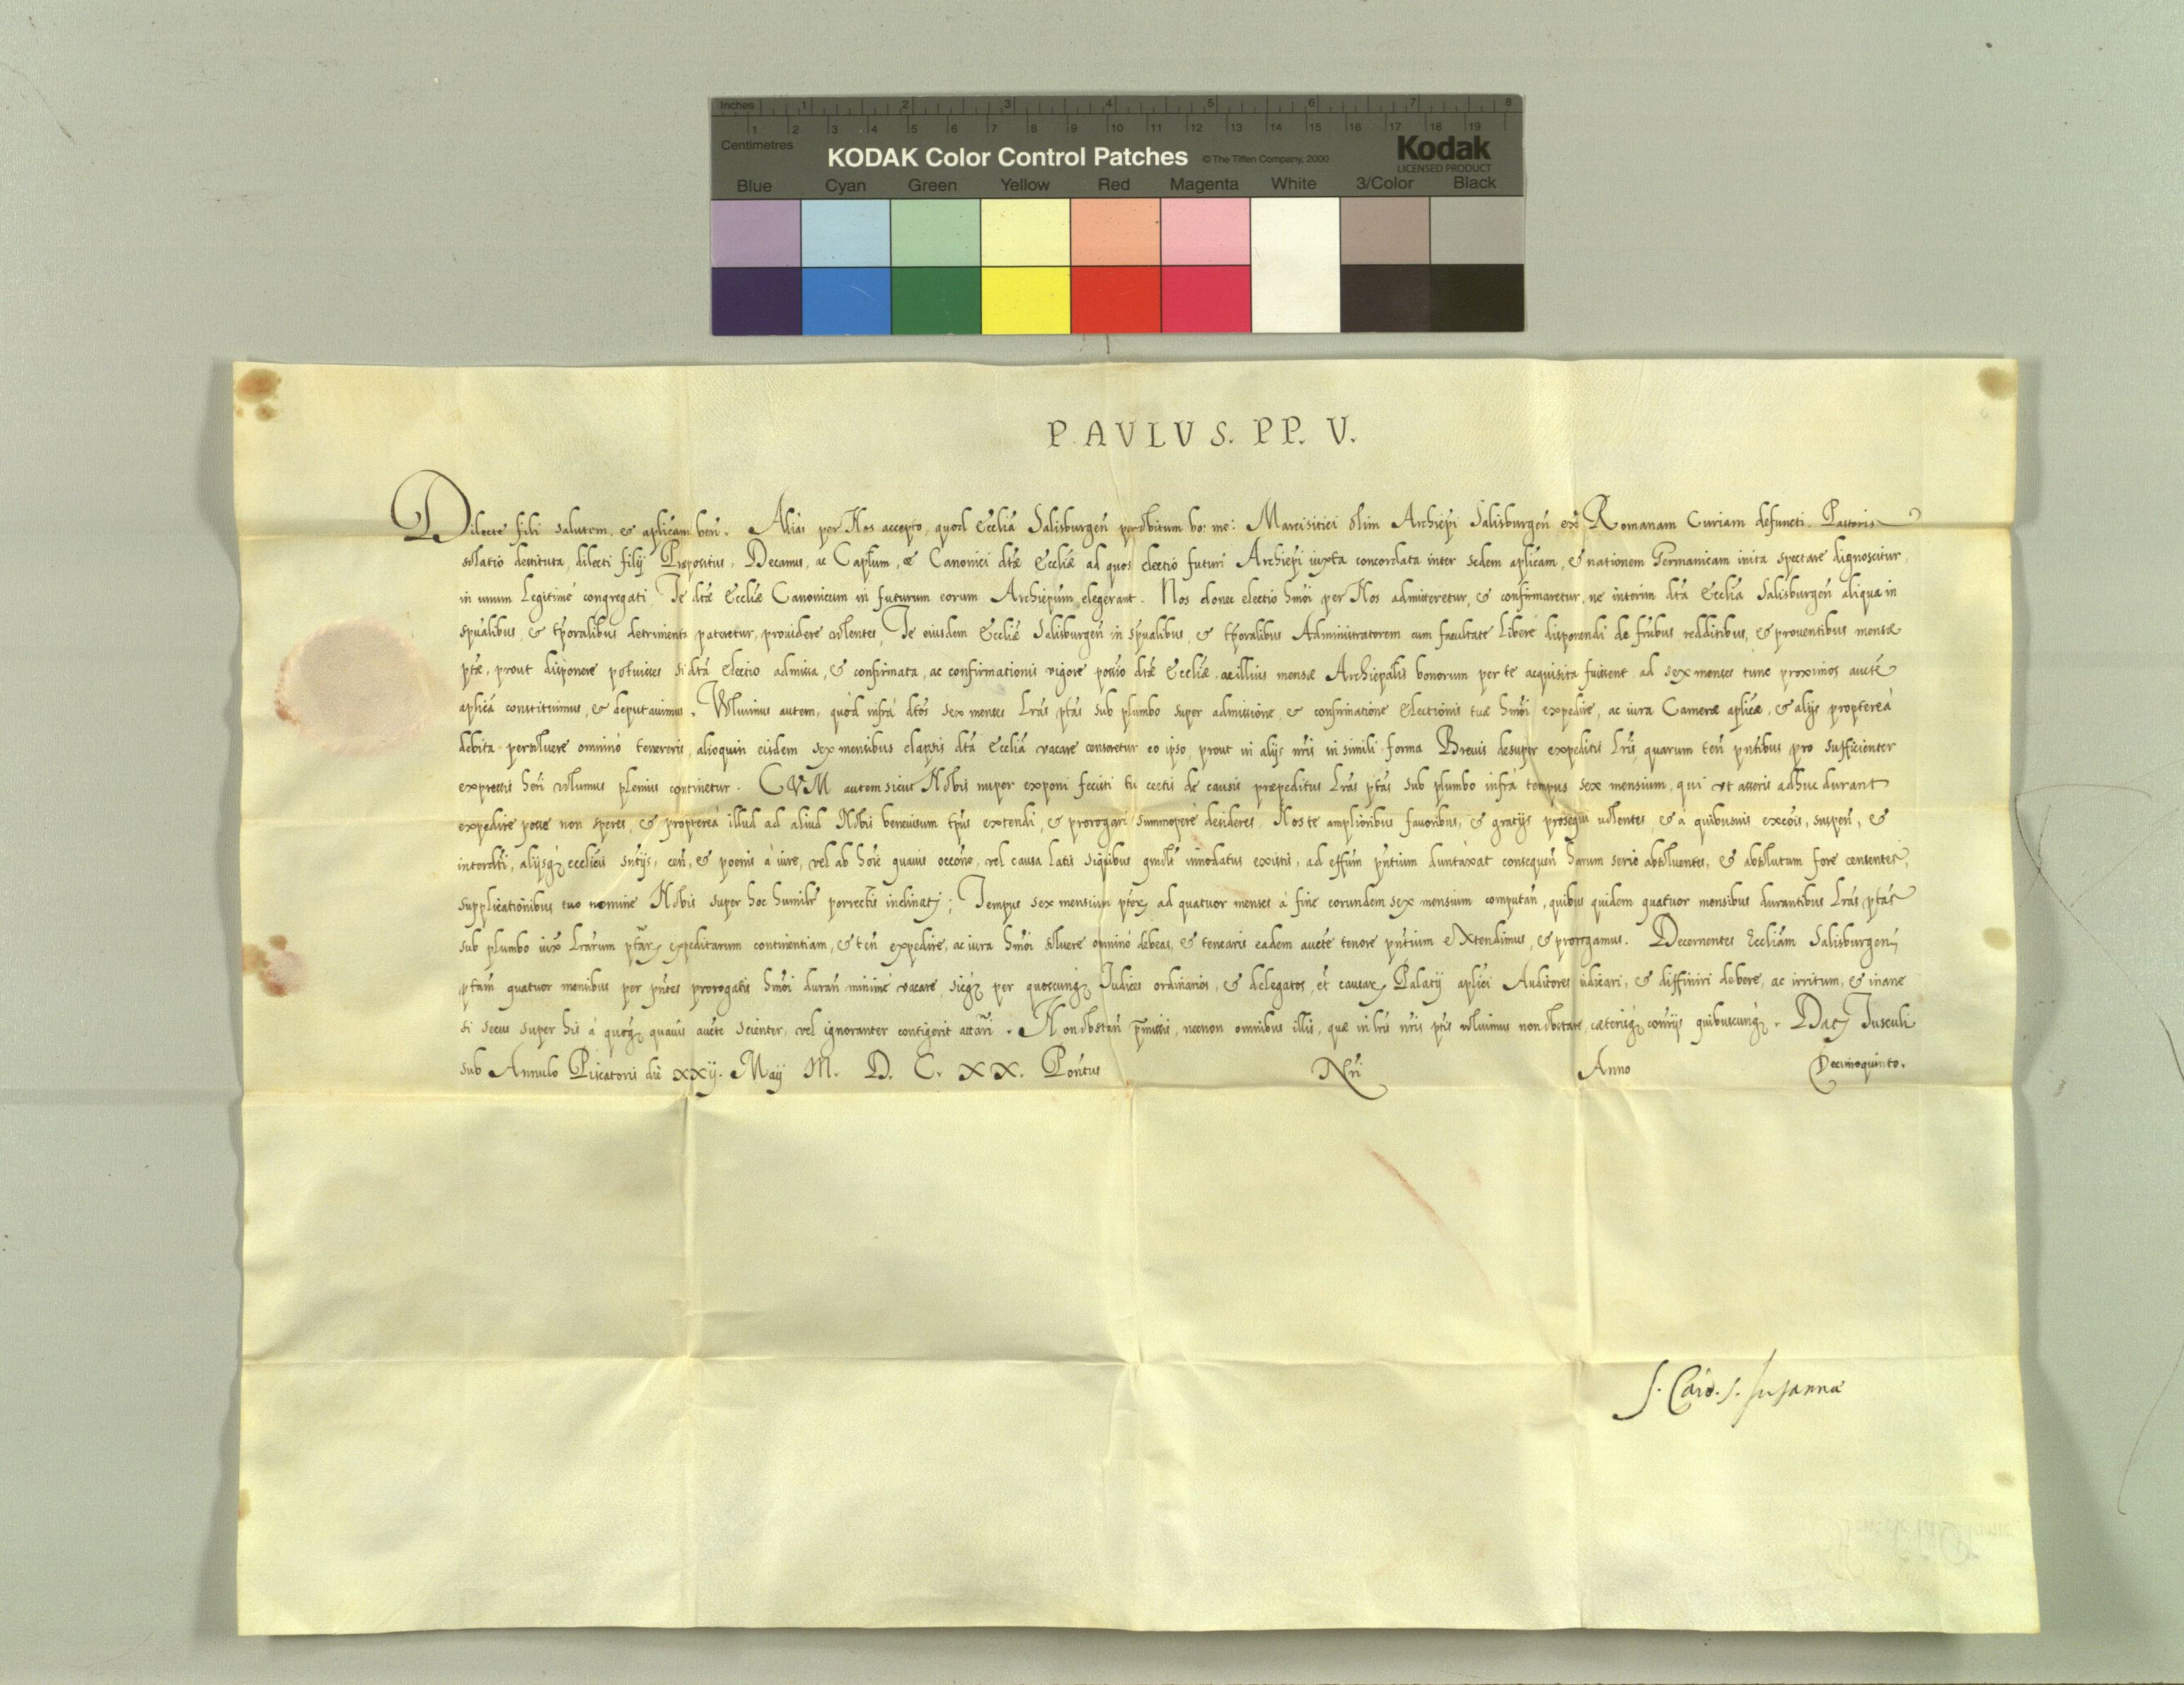 Inches 1 2 3 4 5 6 7 8
1 2 3 4 5 6 7 8 9 10 11 12 13 14 15 16 17 18 19
Centimetres
KODAK Color Control Patches © The Tiffen Company, 2000 Kodak
LICENSED PRODUCT
Blue Cyan Green Yellow Red Magenta White 3/Color Black
PAVLVS. PP. V.
Dilecte fili salutem, & aplicam ben. Alias per Nos accepto, quod Ecclia Salisburgen per obitum bo: me: Marcisitici olim Archiepi Salisburgen extra Romanam Curiam defuncti, Pastoris
solatio destituta, dilecti filij Prepositus, Decanus, ac Caplum, & Canonici dtae Eccliae ad quos electio futuri Archiepi iuxta concordata inter sedem aplicam, & nationem Germanicam inita spectare dignoscitur,
in unum Legitimé congregati Te dtae Eccliae Canonicum in futurum eorum Archiepum elegerant. Nos donec electio hmoi per Nos admitteretur, & confirmaretur, ne interim dta Ecclia Salisburgen aliqua in
spualibus, & tporalibus detrimenta pateretur, prouidere volentes, Te eiusdem Eccliae Salisburgen in spualibus, & tporalibus Administratorem cum facultate Libere disponendi de frubus redditibus, & prouentibus mensae
ptae, prout disponere potuisses si dta electio admissa, & confirmata, ac confirmationis vigore possio dtae Eccliae, ac illius mensae Archiepalis bonorum per te acquisita fuissent, ad sex menses tunc proximos aucte
aplica constituimus, & deputauimus. Voluimus autem, quòd infrà dtos sex menses Lras ptas sub plumbo super admissione, & confirmatione Electionis tuae hmoi expedire, ac iura Camerae aplicae, & alijs proptereà
debita persoluere omninò tenereris, alioquin eisdem sex mensibus elapsis dta Ecclia vacare censeretur eo ipso, prout in alijs nris in simili forma Breuis desuper expeditis Lris, quarum ten pntibus pro sufficienter
expressis heri volumus plenius continetur. CVM autem sicut Nobis nuper exponi fecisti tu certis de causis praepeditus Lras ptas sub plumbo infrà tempus sex mensium, qui vt asseris adhuc durant
expedire posse non speres, & proptereà illud ad aliud Nobis beneuisum tpus extendi, & prorogari summoperè desideres, Nos te amplioribus fauoribus, & gratijs prosequi volentes, & à quibusuis excois, suspen, &
interdti, alijsq; ecclicis sntijs, cen, & poenis à iure, vel ab hoie quauis occone, vel causa latis siquibus qmodlt innodatus existis, ad effum pntium duntaxat consequen harum serie absoluentes, & absolutum fore censentes,
supplicationibus tuo nomine Nobis super hoc humilr porrectis inclinati; Tempus sex mensium ptor ad quatuor menses à fine eorundem sex mensium computan, quibus quidem quatuor mensibus durantibus Lras ptas
sub plumbo iux Lrarum ptar expeditarum continentiam, & ten expedire, ac iura hmoi soluere omninò debeas, & tenearis eadem aucte tenore pntium eXtendimus, & prorogamus. Decernentes Eccliam Salisburgen
ptam quatuor mensibus per pntes prorogatis hmoi duran minimè vacare, sicq; per quoscunq; Judices ordinarios, & delegatos, et causar Palatij aplici Auditores iudicari, & diffiniri debere, ac irritum, & inane
si secus super his à quoq; quauis aucte scienter, vel ignoranter contigerit attari. Non obstan pmissis, necnon omnibus illis, quae in lris nris ptis voluimus non obstare, caeterisq; contrijs quibuscunq;. Dat Tusculi
sub Annulo Piscatoris die xxij. Maij M. D. C. XX. Pontus Nri Anno Decimoquinto.
S. Card. S. Susannae